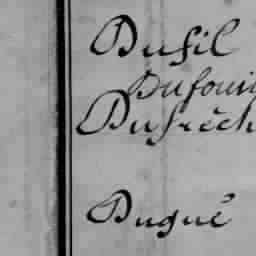 Dufil
Dufouil
Dufrèch
Dugué